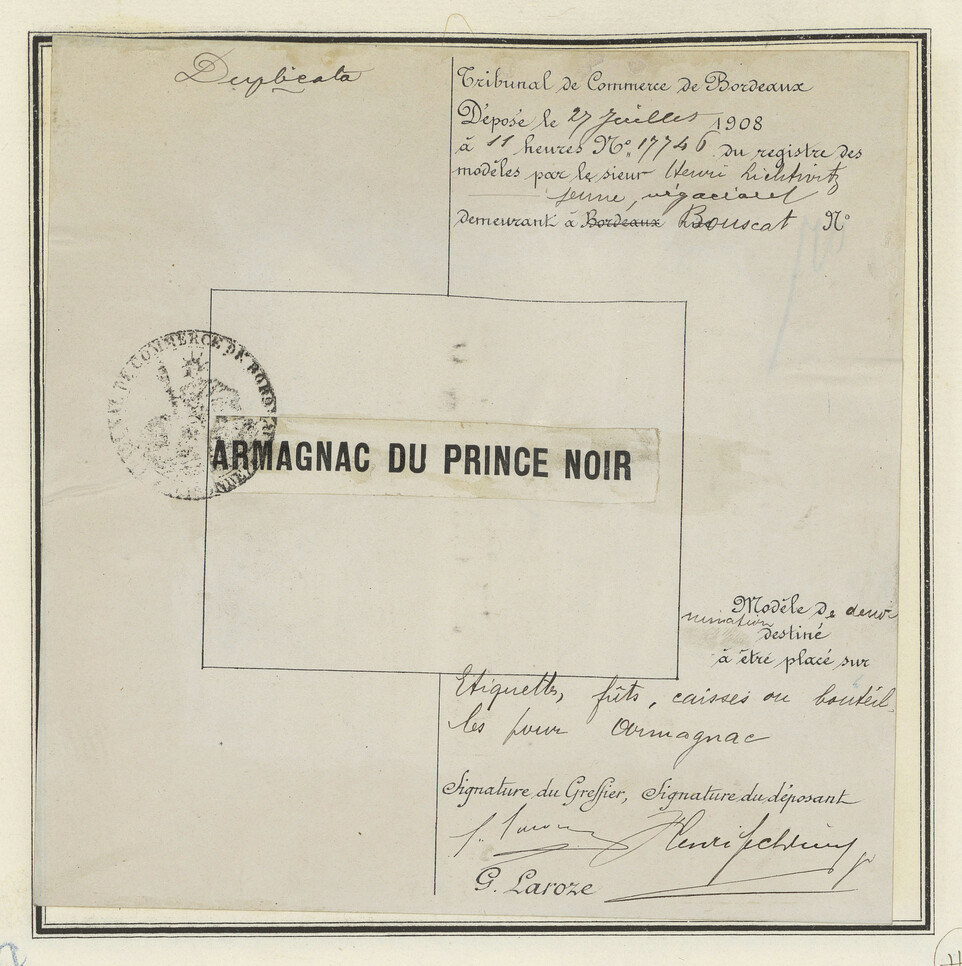 Duplicata
Tribunal de Commerce de Bordeaux
Déposé le 27 Juillet 1908
à 11 heures No. 17746 du registre des
modèles par le sieur Henri Lichtwitz
jeune, négociant
demeurant à Bordeaux Bouscat No
TRIBUNAL DE COMMERCE DE BORDEAUX
ARMAGNAC DU PRINCE NOIR
Modèle De déno
mination
destiné
à être placé sur
Etiquettes, fûts, caisses ou bouteil-
les pour Armagnac
Signature du Greffier, Signature du déposant
Henri Lichtwitz
G. Laroze